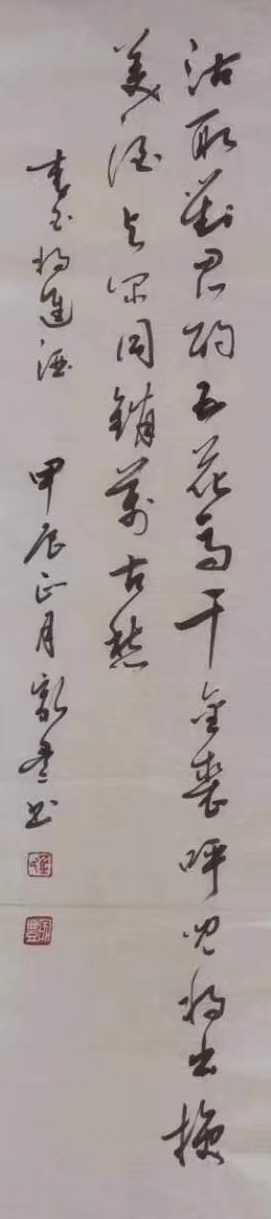 沽取對君酌五花馬千金裘呼兒將出換
美酒與尔同銷萬古愁
李白將進酒 甲辰正月 書